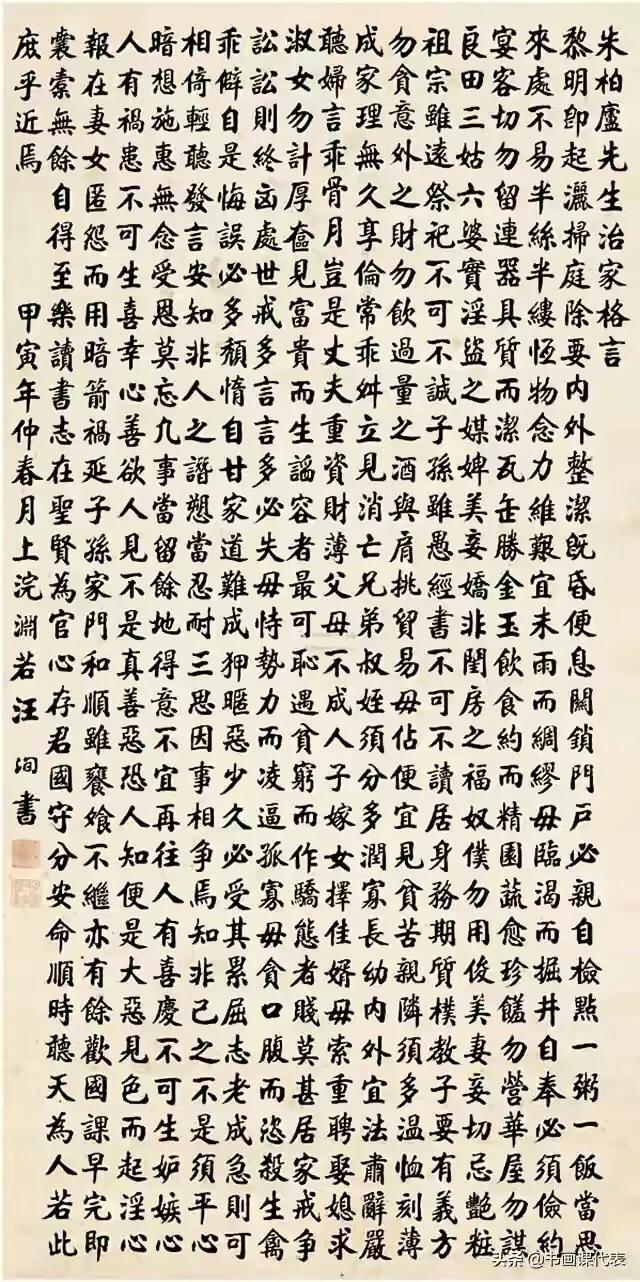 朱柏廬先生治家格言
黎明即起灑掃庭除要內外整潔既昏便息關鎖門戶必親自檢點一粥一飯當思
來處不易半絲半縷恆物念力維艱宜未雨而綢繆毋臨渴而掘井自奉必須儉約
宴客切勿留連器具質而潔瓦缶勝金玉飲食約而精園蔬愈珍饈勿營華屋勿謀
良田三姑六婆實淫盜之媒婢美妾嬌非閨房之福奴僕勿用俊美妻妾切忌艷粧
祖宗雖遠祭祀不可不誠子孫雖愚經書不可不讀居身務期質樸教子要有義方
勿貪意外之財勿飲過量之酒與肩挑貿易毋佔便宜見貧苦親隣須多溫恤刻薄
成家理無久享倫常乖舛立見消亡兄弟叔姪須分多潤寡長幼內外宜法肅辭嚴
聽婦言乖骨月豈是丈夫重資財薄父母不成人子嫁女擇佳婿毋索重聘娶媳求
淑女勿計厚奩見富貴而生謟容者最可恥遇貧窮而作驕態者賤莫甚居家戒爭
訟訟則終凶處世戒多言言多必失毋恃勢力而凌逼孤寡毋貪口腹而恣殺生禽
乖僻自是悔誤必多頹惰自甘家道難成狎暱惡少久必受其累屈志老成急則可
相倚輕聽發言安知非人之譖愬當忍耐三思因事相爭焉知非己之不是須平心
暗想施惠無念受恩莫忘凢事當留餘地得意不宜再往人有喜慶不可生妒嫉心
人有禍患不可生喜幸心善欲人見不是真善惡恐人知便是大惡見色而起淫心
報在妻女匿怨而用暗箭禍延子孫家門和順雖饔飧不繼亦有餘歡國課早完即
囊橐無餘自得至樂讀書志在聖賢為官心存君國守分安命順時聽天為人若此
庶乎近焉 甲寅年仲春月上浣淵若汪洵書
头条 @书画课代表